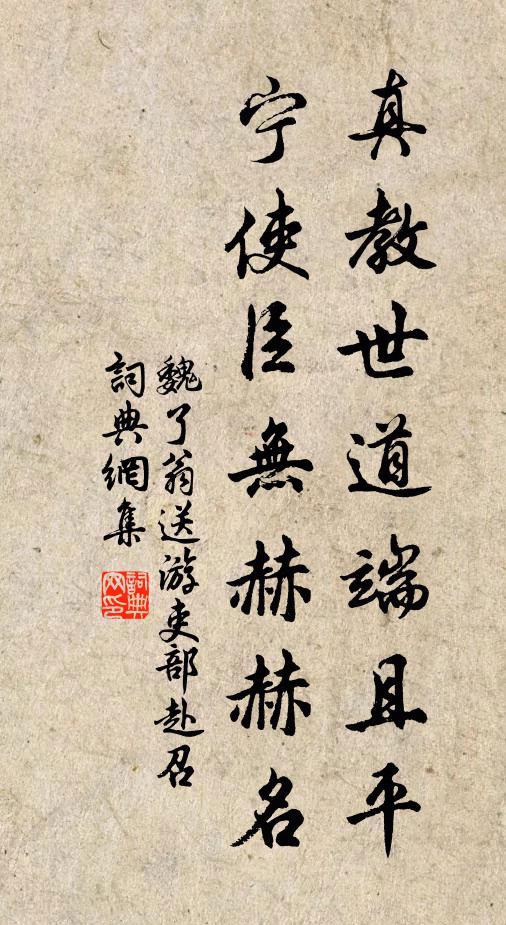 真教世道端且平
宁使臣無赫赫名
魏了翁送游吏部赴召
詞典網集
詞典
网印